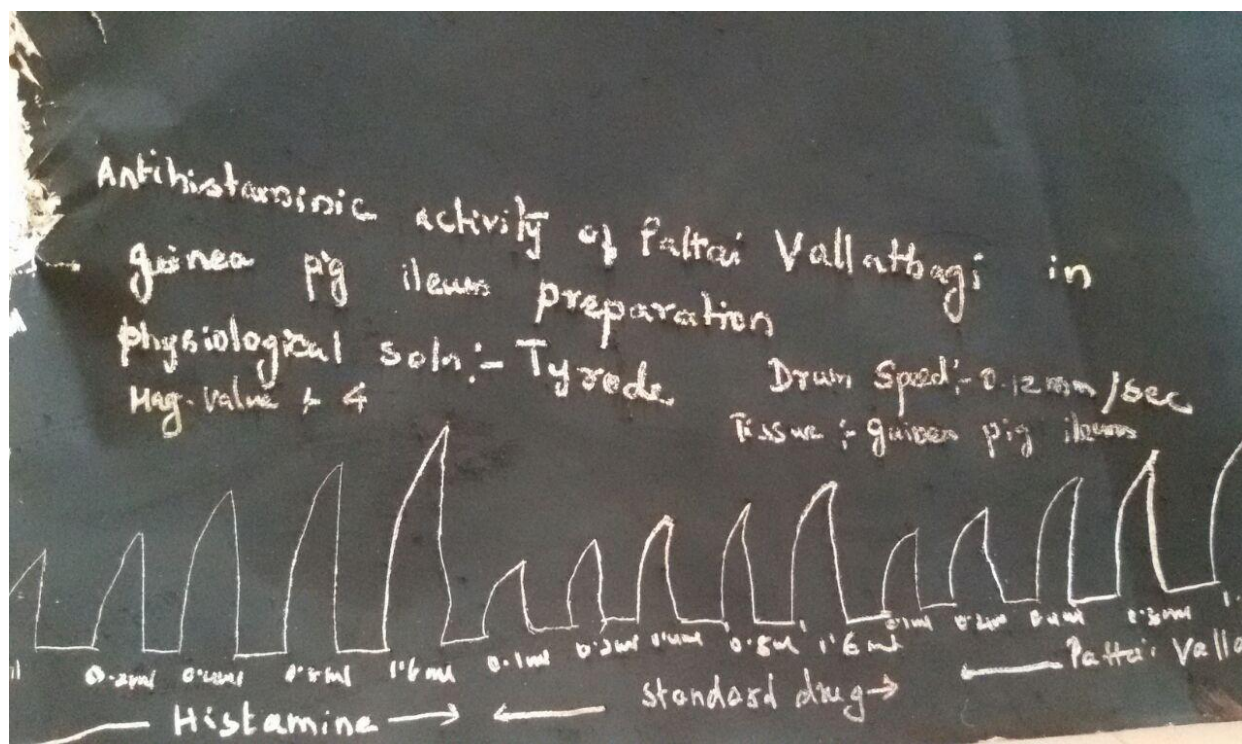 Antihistaminic activity of Pattai Vallathagi in
guinea pig ileum preparation
physiological soln:- Tyrode
Drum Speed:- 0.12mm/sec
Mag. Value :- 4
Tissue :- guinea pig ileum
0.2ml 0.4ml 0.8ml 1.6ml 0.1ml 0.2ml 0.4ml 0.8ml 1.6ml 0.1ml 0.2ml 0.4ml
Histamine
standard drug
Pattai Valla